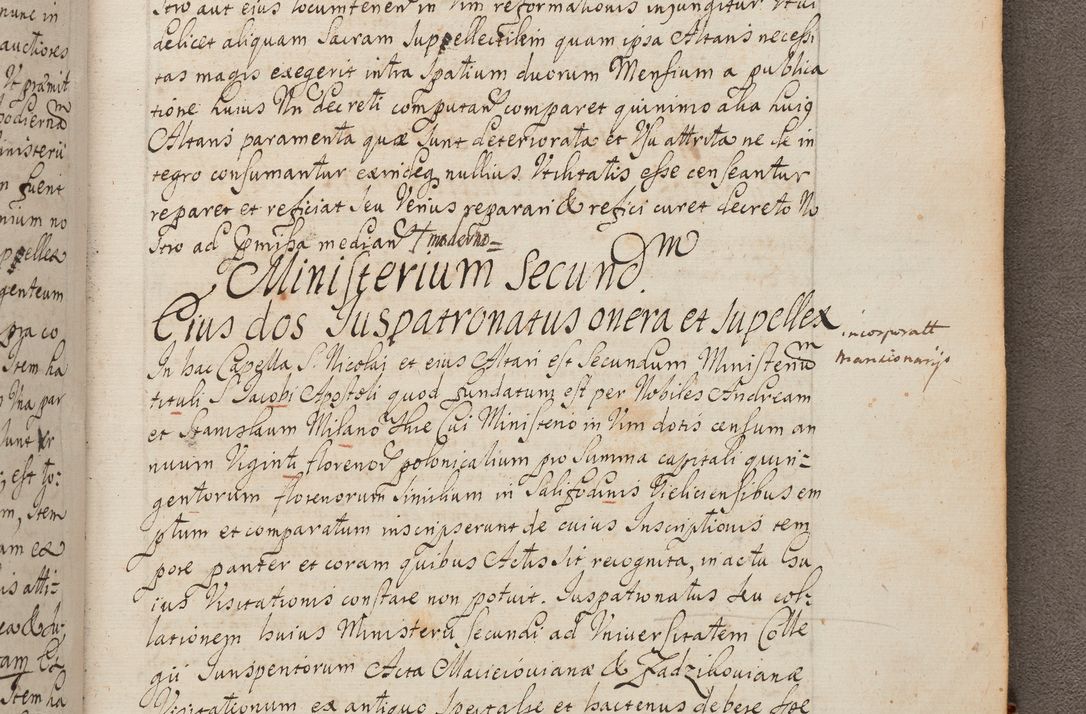 nunc in
auctiores
Ut præmit
hodiernū
inisterii
n fuerit
nium no
ppellex
genteum
pra co
Item ha
s Una par
sunt
est
m, Item
am ex
is atti-
Item ha
stro aut eius locumtenen in Vim reformationis iniungitur Vtui
delicet aliquam Sacram Suppellectilem quam ipsa Altaris necessi
tas magis exegerit intra Spatium duorum Mensium a publica
tione huius Nri decreti computan comparet quinimo alia huius
Altaris paramenta quæ Sunt deteriorata et Vsu attrita ne se in
tegro consumantur exindeq nullius Vtilitatis esse censeantur
reparet et reficiat seu Verius reparari & refici curet decreto No
stro ad præmissa median † moderno=
Ministerium Secund.m
Eius dos Iuspatronatus onera et Supellex
incorporatt
Mansionarijs
In hac Capella S. Nicolai et eius Altari est Secundum Ministeriūm
tituli S Iacobi Apostoli quod fundatum est per Nobiles Andream
et Stanislaum Milano Huic Cui Ministerio in Vim dotis censum an
nuum Viginti florenor polonicalium pro Summa capitali quin=
gentorum florenorum Similium in Salifodinis Vieliciensibus em
ptum et comparatum inscripserunt de cuius Inscriptionis tem
pore pariter et coram quibus Actis sit recognita, in actu hu
ius Visitationis constare non potuit. Iuspatronatus seu col-
lationem huius Ministerii secundi ad Vniversitatem Colle
gii Iurisperitorum Acta Macieiouianæ & Zadzikouianæ
Visitationum ex antiquo Spectasse et hactenus debere